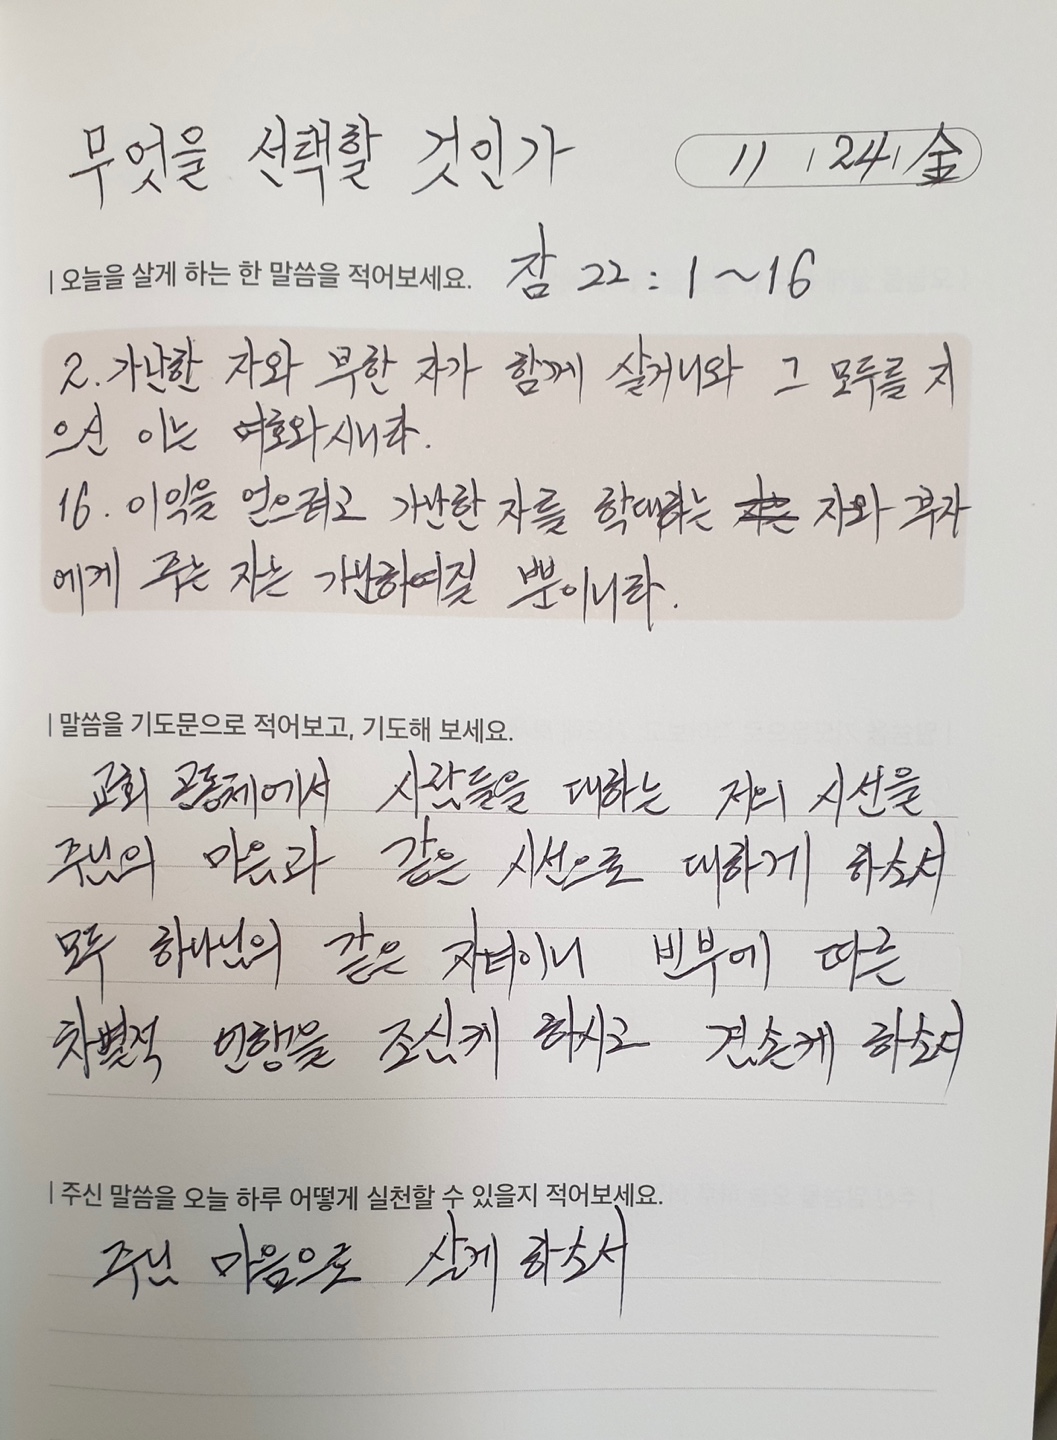 무엇을 선택할 것인가
11 / 24 / 金
| 오늘을 살게 하는 한 말씀을 적어보세요. 잠 22 : 1 ~ 16
2. 가난한 자와 부한 자가 함께 살거니와 그 모두를 지
으신 이는 여호와시니라.
16. 이익을 얻으려고 가난한 자를 학대하는 자와 부자
에게 주는 자는 가난하여질 뿐이니라.
| 말씀을 기도문으로 적어보고, 기도해 보세요.
교회 공동체에서 사람들을 대하는 저의 시선을
주님의 마음과 같은 시선으로 대하게 하소서
모두 하나님의 같은 자녀이니 빈부에 따른
차별적 언행을 조심케 하시고 겸손케 하소서
| 주신 말씀을 오늘 하루 어떻게 실천할 수 있을지 적어보세요.
주님 마음으로 살게 하소서